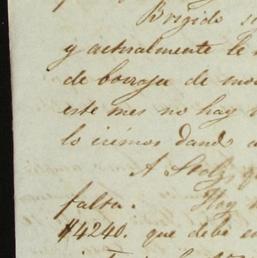 Brigido
y actualmente le
de borraja de
este mes no hay
lo irémos dando
A Stolz
falta. Hoy
$4240. que debe